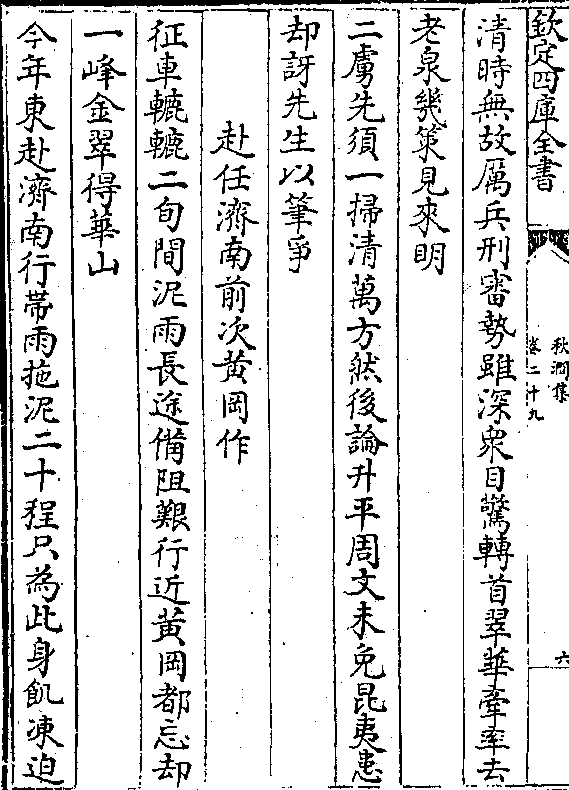 欽定四庫全書
秋澗集
卷二十九
六
清時無故厲兵刑審勢雖深衆目驚轉首翠華牽率去
老泉幾策見來明
二虜先須一掃清萬方然後論升平周文未免昆夷患
却訝先生以筆爭
赴任濟南前次黄岡作
征車轆轆二旬間泥雨長途備阻艱行近黄岡都忘却
一峰金翠得華山
今年東赴濟南行帶雨拖泥二十程只為此身飢凍迫